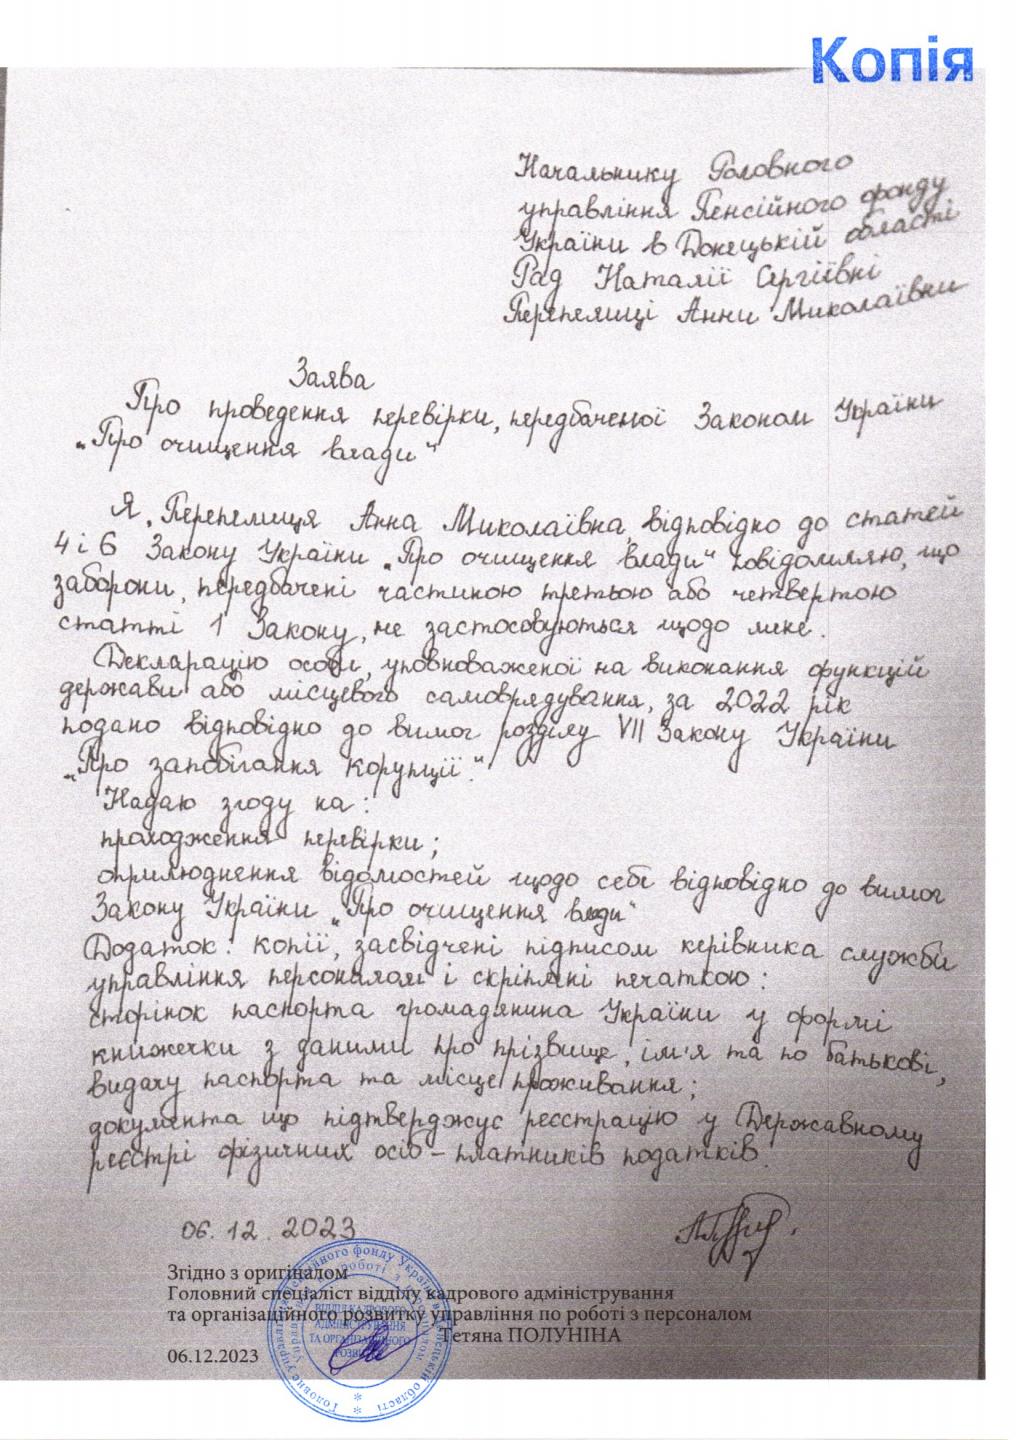 Копія
Начальнику Головного
управління Пенсійного фонду
України в Донецькій області
Рад Наталії Сергіївні
Перепелиці Анни Миколаївни
Заява
Про проведення перевірки, передбаченої Законом України
„Про очищення влади“
Я, Перепелиця Анна Миколаївна, відповідно до статей
4 і 6 Закону України „Про очищення влади“ повідомляю, що
заборони, передбачені частиною третьою або четвертою
статті 1 Закону, не застосовуються щодо мене.
Декларацію особи, уповноваженої на виконання функцій
держави або місцевого самоврядування, за 2022 рік
подано відповідно до вимог розділу VII Закону України
„Про запобігання корупції“.
Надаю згоду на:
проходження перевірки;
оприлюднення відомостей щодо себе відповідно до вимог
Закону України „Про очищення влади“
Додаток: копії, засвідчені підписом керівника служби
управління персоналом і скріплені печаткою:
сторінок паспорта громадянина України у формі
книжечки з даними про прізвище, ім'я та по батькові,
видачу паспорта та місце проживання;
документа що підтверджує реєстрацію у Державному
реєстрі фізичних осіб – платників податків.
06.12.2023
Згідно з оригіналом
Головний спеціаліст відділу кадрового адміністрування
та організаційного розвитку управління по роботі з персоналом
Тетяна ПОЛУНІНА
06.12.2023
ВІДДІЛ КАДРОВОГО
АДМІНІСТРУВАННЯ
ТА ОРГАНІЗАЦІЙНОГО
РОЗВИТКУ